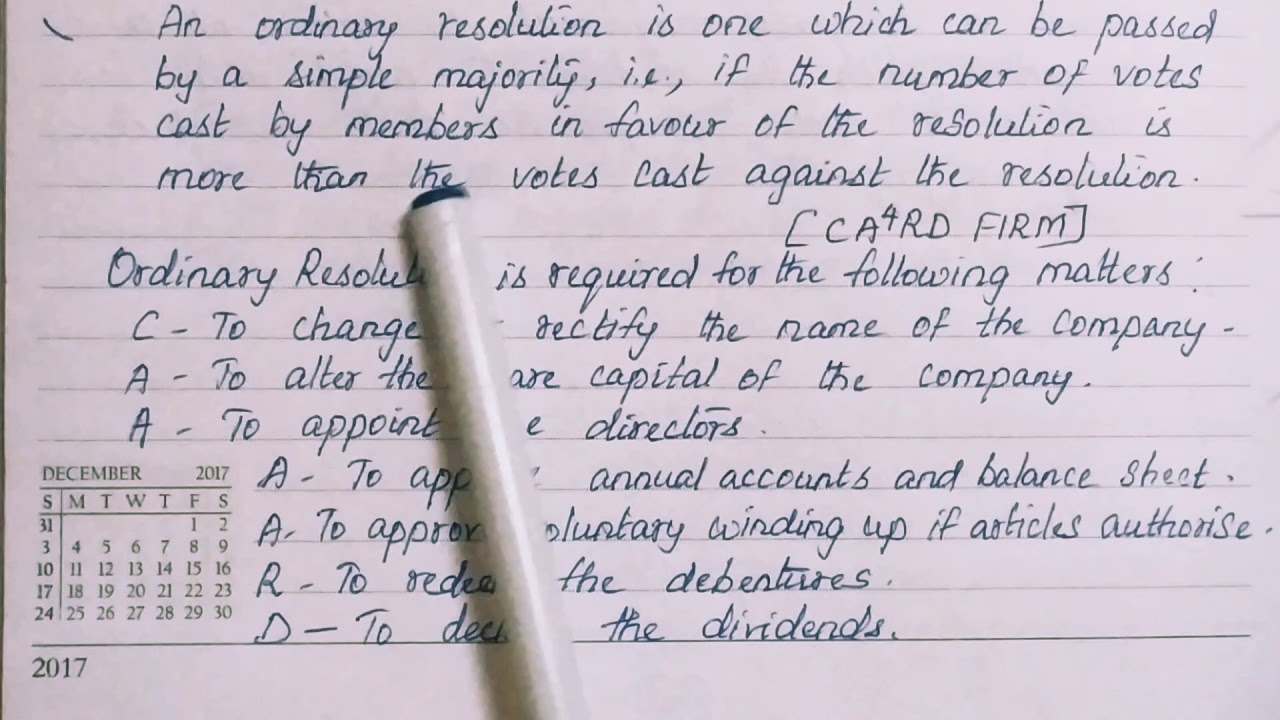 An ordinary resolution is one which can be passed
by a simple majority, i.e., if the number of votes
cast by members in favour of the resolution is
more than the votes cast against the resolution.
[CA⁴RD FIRM]
Ordinary is required for the following matters:
C - To change rectify the name of the company.
A - To alter the capital of the company.
A - To appoint directors.
A - To annual accounts and balance sheet.
A - To winding up if articles authorise.
R - To the debentures.
D - To the dividends.
DECEMBER 2017
S M T W T F S
31 1 2
3 4 5 6 7 8 9
10 11 12 13 14 15 16
17 18 19 20 21 22 23
24 25 26 27 28 29 30
2017